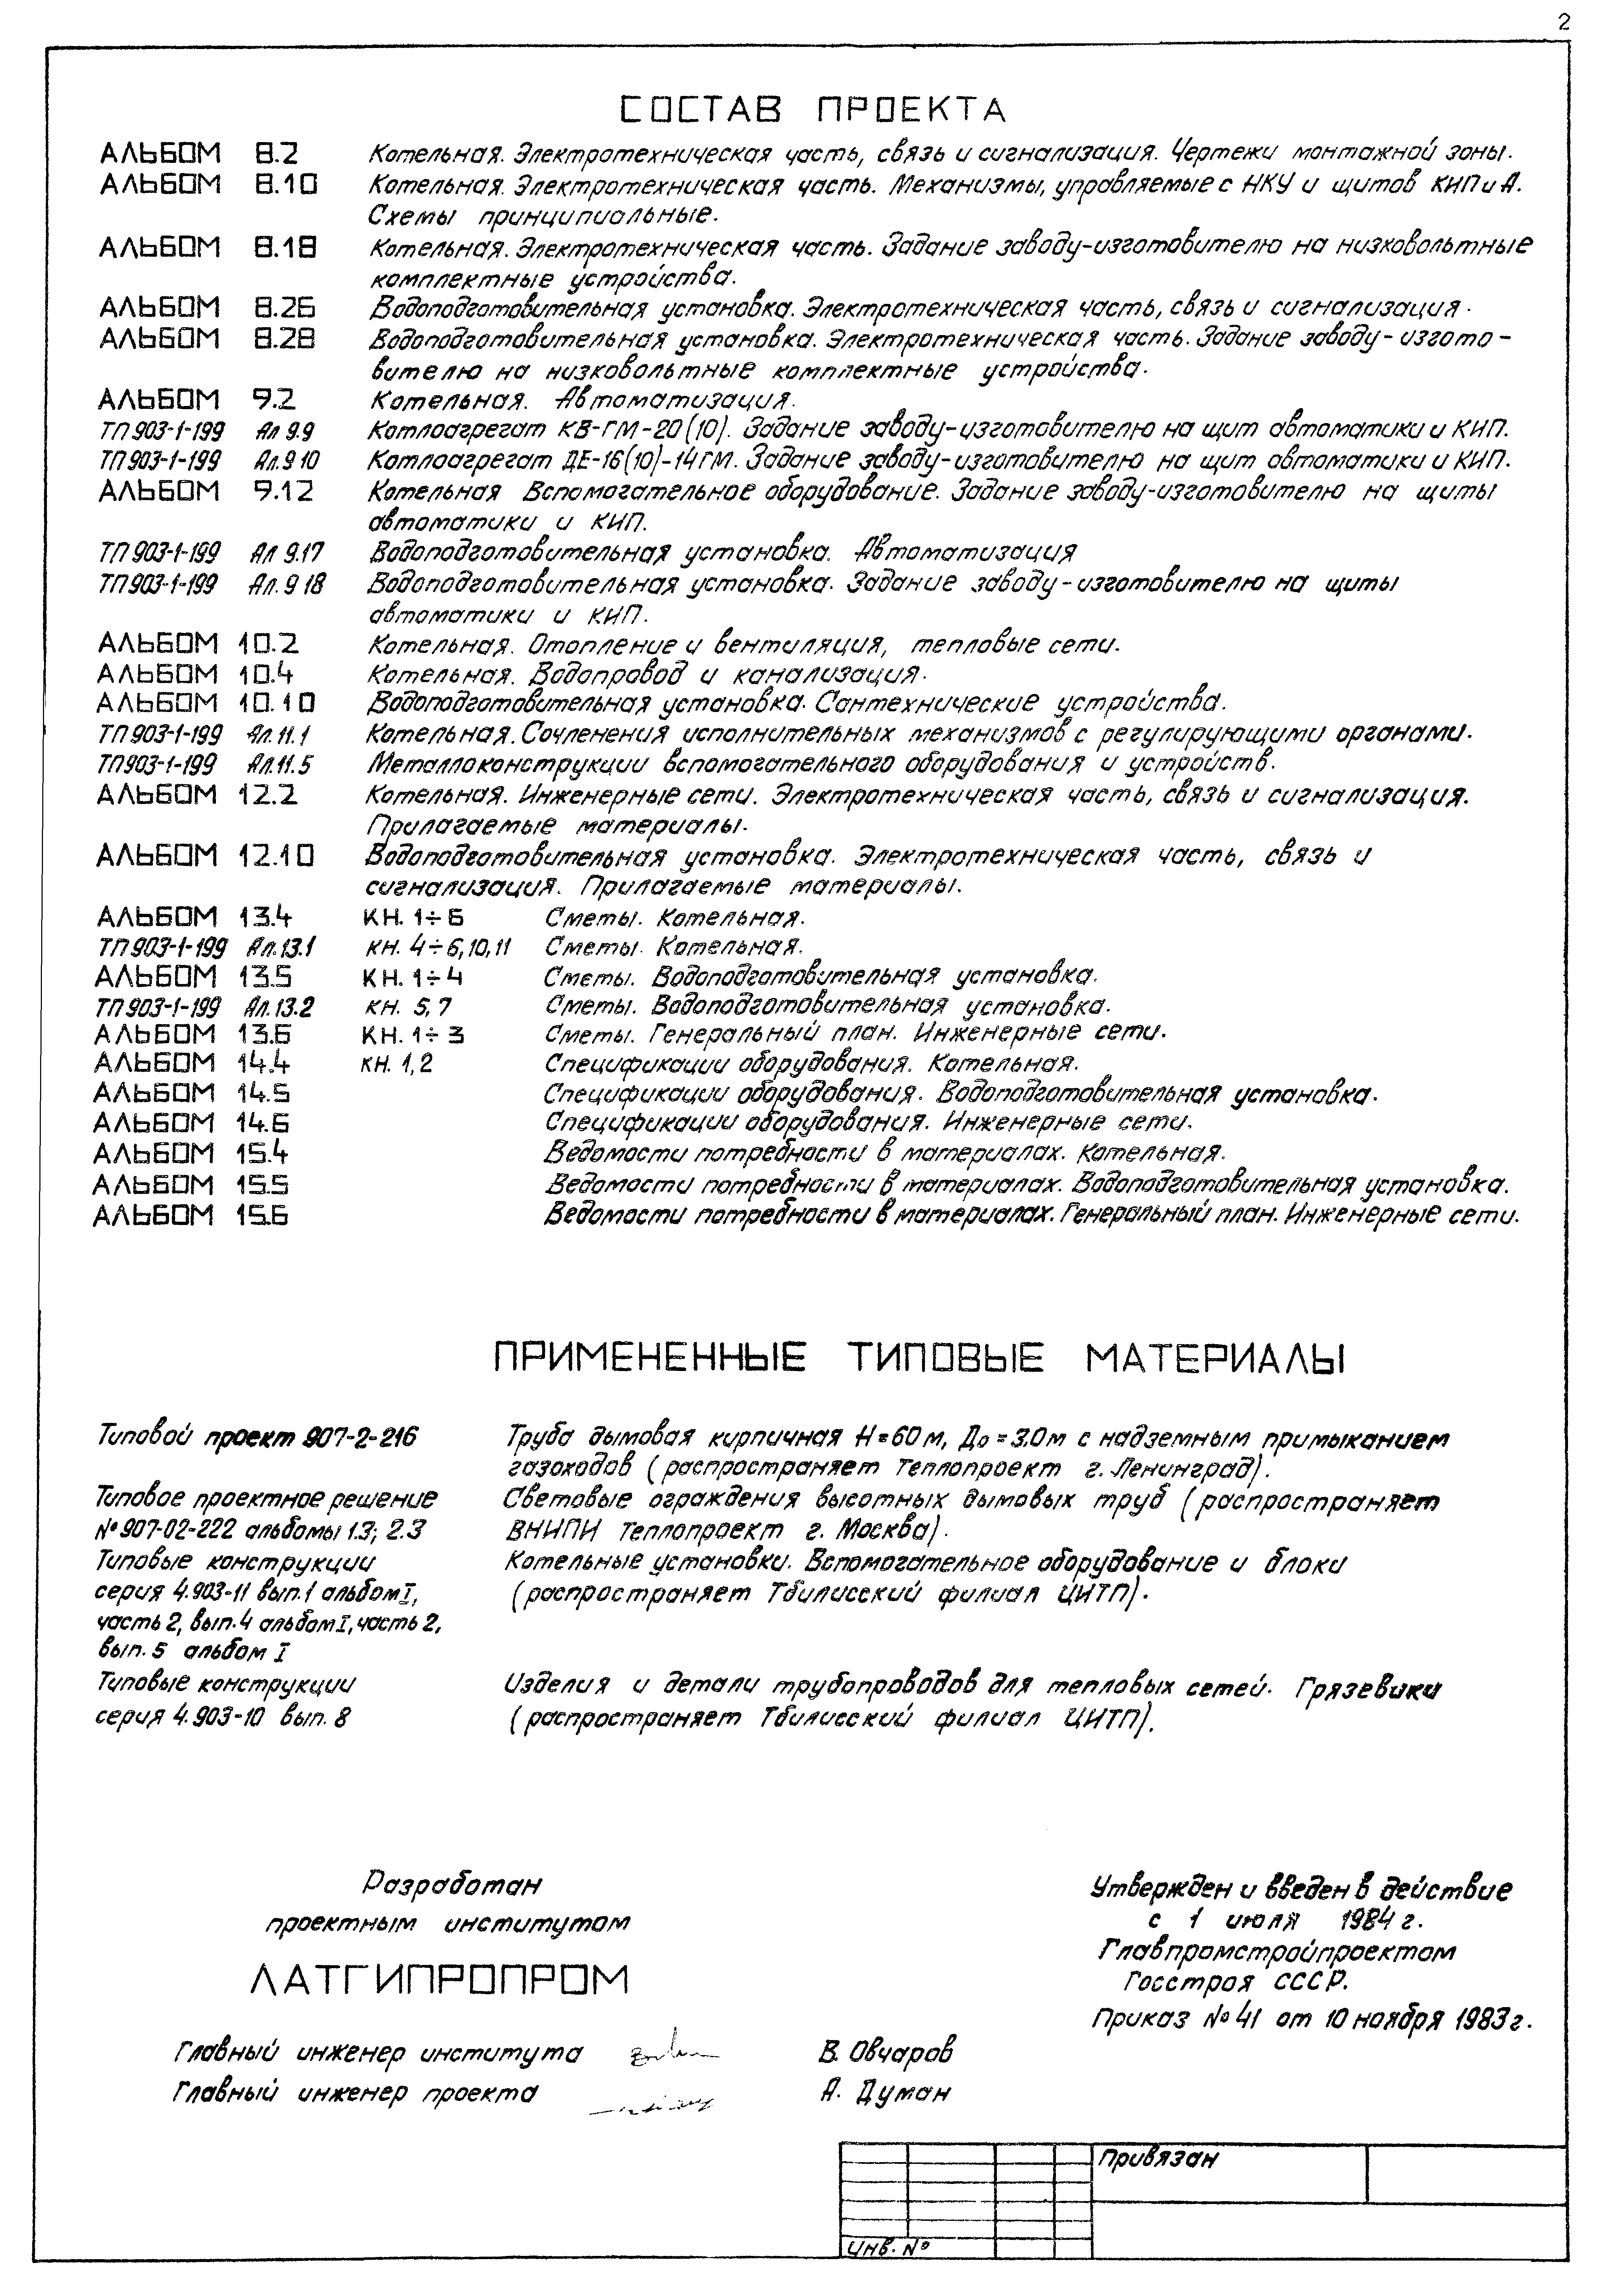 2
СОСТАВ ПРОЕКТА
АЛЬБОМ 8.2 Котельная. Электротехническая часть, связь и сигнализация. Чертежи монтажной зоны.
АЛЬБОМ 8.10 Котельная. Электротехническая часть. Механизмы, управляемые с НКУ и щитов КИП и А.
Схемы принципиальные.
АЛЬБОМ 8.18 Котельная. Электротехническая часть. Задание заводу-изготовителю на низковольтные
комплектные устройства.
АЛЬБОМ 8.26 Водоподготовительная установка. Электротехническая часть, связь и сигнализация.
АЛЬБОМ 8.28 Водоподготовительная установка. Электротехническая часть. Задание заводу-изгото-
вителю на низковольтные комплектные устройства.
АЛЬБОМ 9.2 Котельная. Автоматизация.
ТП 903-1-199 Ал 9.9 Котлоагрегат КВ-ГМ-20(10). Задание заводу-изготовителю на щит автоматики и КИП.
ТП 903-1-199 Ал. 9 10 Котлоагрегат ДЕ-16(10)-14ГМ. Задание заводу-изготовителю на щит автоматики и КИП.
АЛЬБОМ 9.12 Котельная Вспомогательное оборудование. Задание заводу-изготовителю на щиты
автоматики и КИП.
ТП 903-1-199 Ал 9.17 Водоподготовительная установка. Автоматизация
ТП 903-1-199 Ал. 9 18 Водоподготовительная установка. Задание заводу-изготовителю на щиты
автоматики и КИП.
АЛЬБОМ 10.2 Котельная. Отопление и вентиляция, тепловые сети.
АЛЬБОМ 10.4 Котельная. Водопровод и канализация.
АЛЬБОМ 10.10 Водоподготовительная установка. Сантехнические устройства.
ТП 903-1-199 Ал. 11.1 Котельная. Сочленения исполнительных механизмов с регулирующими органами.
ТП 903-1-199 Ал. 11.5 Металлоконструкции вспомогательного оборудования и устройств.
АЛЬБОМ 12.2 Котельная. Инженерные сети. Электротехническая часть, связь и сигнализация.
Прилагаемые материалы.
АЛЬБОМ 12.10 Водоподготовительная установка. Электротехническая часть, связь и
сигнализация. Прилагаемые материалы.
АЛЬБОМ 13.4 КН. 1÷6 Сметы. Котельная.
ТП 903-1-199 Ал. 13.1 КН. 4÷6, 10, 11 Сметы. Котельная.
АЛЬБОМ 13.5 КН. 1÷4 Сметы. Водоподготовительная установка.
ТП 903-1-199 Ал. 13.2 КН. 5, 7 Сметы. Водоподготовительная установка.
АЛЬБОМ 13.6 КН. 1÷3 Сметы. Генеральный план. Инженерные сети.
АЛЬБОМ 14.4 КН. 1, 2 Спецификации оборудования. Котельная.
АЛЬБОМ 14.5 Спецификации оборудования. Водоподготовительная установка.
АЛЬБОМ 14.6 Спецификации оборудования. Инженерные сети.
АЛЬБОМ 15.4 Ведомости потребности в материалах. Котельная.
АЛЬБОМ 15.5 Ведомости потребности в материалах. Водоподготовительная установка.
АЛЬБОМ 15.6 Ведомости потребности в материалах. Генеральный план. Инженерные сети.
ПРИМЕНЕННЫЕ ТИПОВЫЕ МАТЕРИАЛЫ
Типовой проект 907-2-216 Труба дымовая кирпичная Н=60м, До=3.0м с надземным примыканием
газоходов (распространяет Теплопроект г. Ленинград).
Типовое проектное решение Световые ограждения высотных дымовых труб (распространяет
№ 907-02-222 альбомы 1.3; 2.3 ВНИПИ Теплопроект г. Москва).
Типовые конструкции Котельные установки. Вспомогательное оборудование и блоки
серия 4.903-11 вып. 1 альбом I, (распространяет Тбилисский филиал ЦИТП).
часть 2, вып. 4 альбом I, часть 2,
вып. 5 альбом I
Типовые конструкции Изделия и детали трубопроводов для тепловых сетей. Грязевики
серия 4.903-10 вып. 8 (распространяет Тбилисский филиал ЦИТП).
Разработан
проектным институтом
ЛАТГИПРОПРОМ
Главный инженер института В. Овчаров
Главный инженер проекта А. Думан
Утвержден и введен в действие
с 1 июля 1984 г.
Главпромстройпроектом
Госстроя СССР.
Приказ № 41 от 10 ноября 1983 г.
Привязан
Инв. №